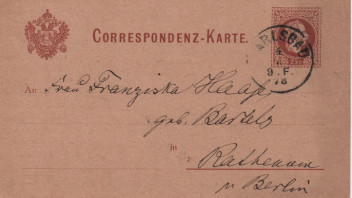 CORRESPONDENZ-KARTE.
CARLSBAD
4
9. F.
78
An Frau Franziska Haase
geb. Bartels
in
Rathenow
b. Berlin